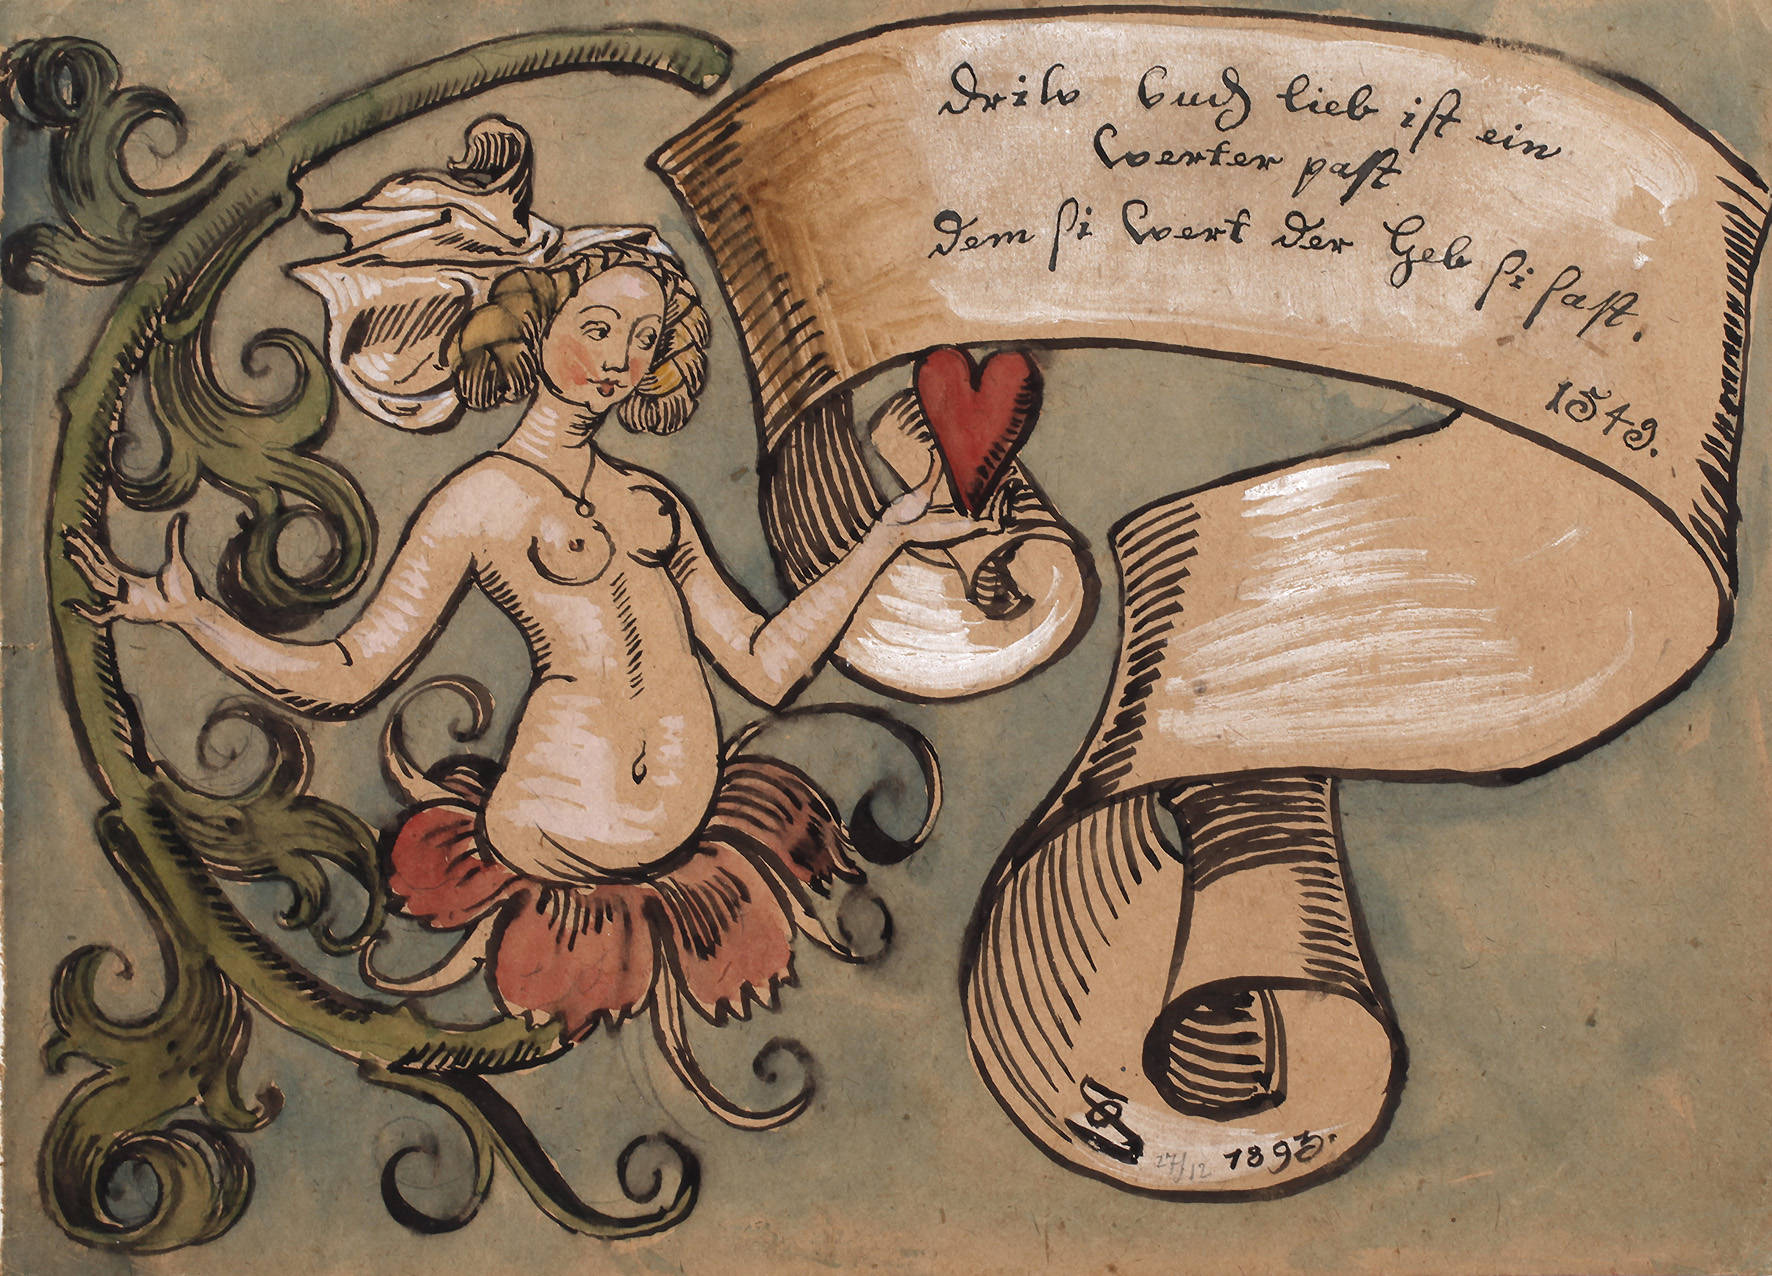 driw vnd lieb ist ein
werter gast
dem si wert der heb si fast.
1549.
27/12 1893.